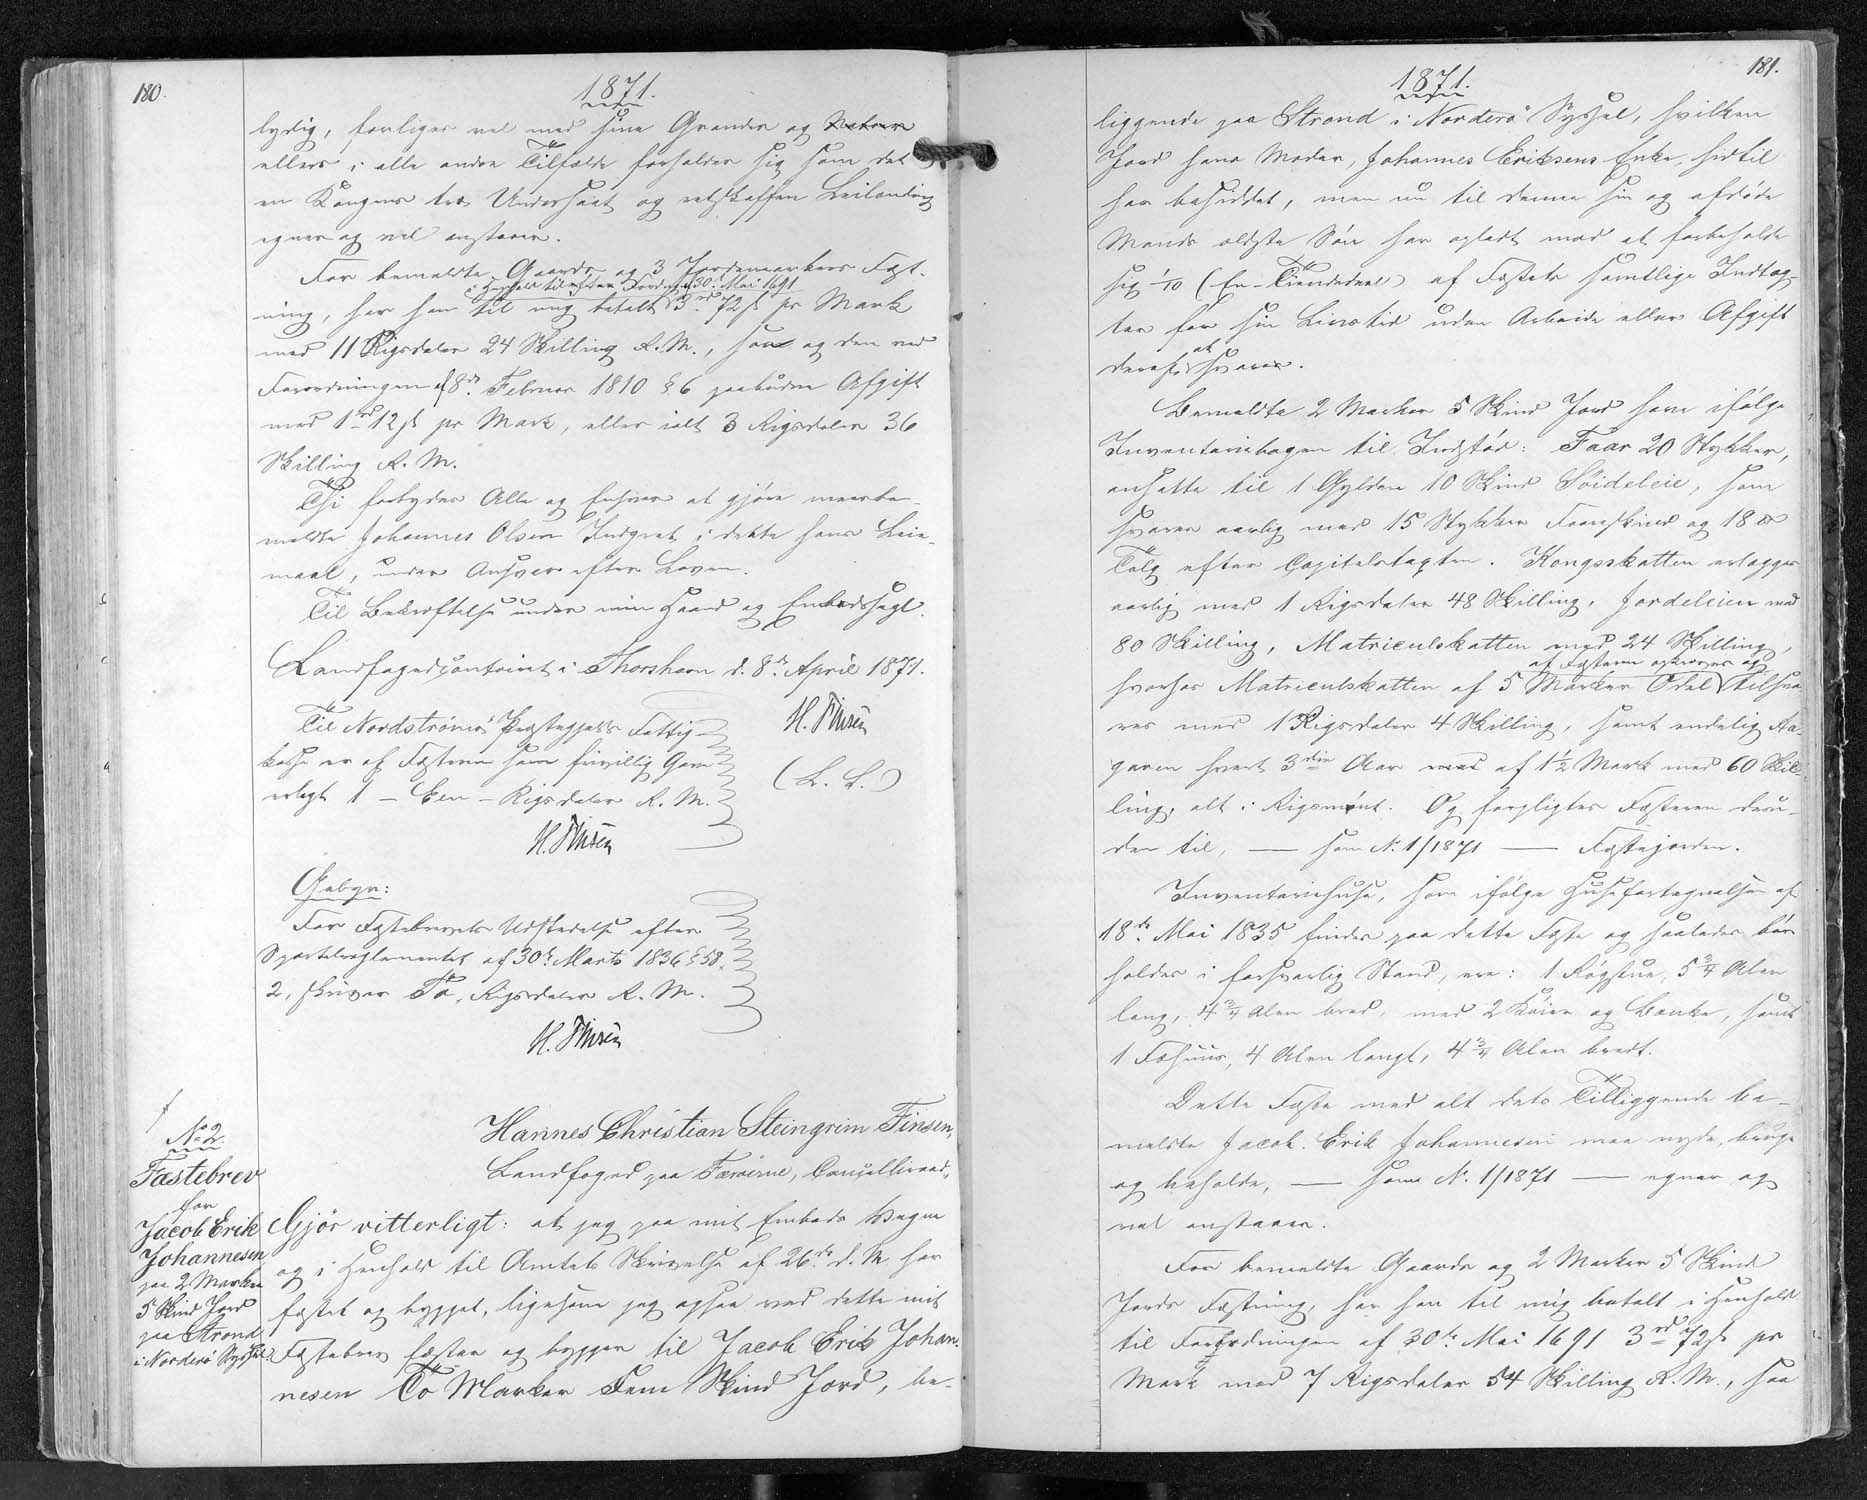 180.
1871.
lydig, forliges vel med sine Grander og Naboer
ellers i alle andre Tilfælde forholder sig som det
en Kongens tro Undersaat og retskaffen Leilænding
egner og vel anstaaer.
For bemeldte Gaards og 3 Jordemarkers Fæst-
i Henhold til Forordn. af 30. Mai 1691
ning, har han til mig betalt 3 rd 72 ß pr Mark
med 11 Rigsdaler 24 Skilling R. M., saa og den ved
Forordningen af 8de Februar 1810 § 6 paabudne Afgift
med 1 rd 12 ß pr Mark, eller ialt 3 Rigsdaler 36
Skilling R. M.
Thi forbydes Alle og Enhver at gjøre meerbe-
meldte Johannes Olsen Indgreb i dette hans Leie-
maal, under Ansvar efter Loven.
Til Bekræftelse under min Haand og Embedssegl.
Landfogedcontoiret i Thorshavn d. 8de April 1871.
H. Finsen
(L. S.)
Til Nordstrømø Præstegjelds Fattig-
kasse er af Fæsteren som frivillig Gave
erlagt 1 - Een - Rigsdaler R. M.
H. Finsen
Gebyr:
For Fæstebrevets Udstedelse efter
Sportelreglementet af 30te Marts 1836 § 58.
2, skriver To, Rigsdaler R. M.
H. Finsen
No 2.
Fæstebrev
for
Jacob Erik
Johannesen
paa 2 Marker
5 Skind Jord
paa Strond
i Norderø Syssel.
Hannes Christian Steingrim Finsen,
Landfoged paa Færøerne, Cancelliraad,
Gjør vitterligt: at jeg paa mit Embeds Vegne
og i Henhold til Amtets Skrivelse af 26de d. M. har
fæstet og bygget, ligesom jeg ogsaa ved dette mit
Fæstebrev fæster og bygger til Jacob Erik Johan-
nesen To Marker Fem Skind Jord, be-
181.
1871.
liggende paa Strond i Norderø Syssel, hvilken
Jord hans Moder, Johannes Eriksens Enke, hidtil
har besiddet, men nu til denne sin og afdøde
Mands ældste Søn har opladt mod at forbeholde
sig 1/10 (En-Tiendedeel) af Fæstets samtlige Indtæg-
ter for sin Livstid uden Arbeide eller Afgift
deraf at svare.
Bemeldte 2 Marker 5 Skind Jord have ifølge
Inventariebogen til Indstød: Faar 20 Stykker,
ansatte til 1 Gylden 10 Skind Søideleie, som
svares aarlig med 15 Stykker Faareskind og 18 ℔
Talg efter Capitelstaxten. Kongsskatten erlægges
aarlig med 1 Rigsdaler 48 Skilling, Jordeleien med
80 Skilling, Matriculskatten med 24 Skilling,
af Fæsteren oppebæres og
hvorhos Matriculskatten af 5 Marker Odel tilsva-
res med 1 Rigsdaler 4 Skilling, samt endelig Aa-
gaven hvert 3die Aar med af 1½ Mark med 60 Skil-
ling, alt i Rigsmønt. Og forpligtes Fæsteren desu-
den til, — som No 1/1871 — Fæstejorden.
Inventariehuse, som ifølge Husefortegnelsen af
18de Mai 1835 findes paa dette Fæste og saaledes bør
holdes i forsvarlig Stand, ere: 1 Røgstue, 5¾ Alen
lang, 4¾ Alen bred, med 2 Køier og Bænke, samt
1 Fæhuus, 4 Alen langt, 4¾ Alen bredt.
Dette Fæste med alt dets Tilliggende be-
meldte Jacob Erik Johannesen maa nyde, bruge
og beholde, — som No 1/1871 — egner og
vel anstaaer.
For bemeldte Gaards og 2 Marker 5 Skind
Jords Fæstning, har han til mig betalt i Henhold
til Forordningen af 30te Mai 1691 3 rd 72 ß pr
Mark med 7 Rigsdaler 54 Skilling R. M., saa